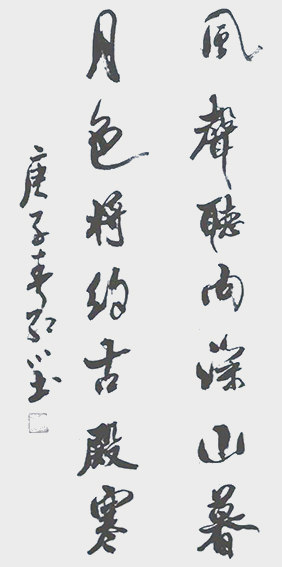 風聲聽向深山暮
月色將約古殿寒
庚子春